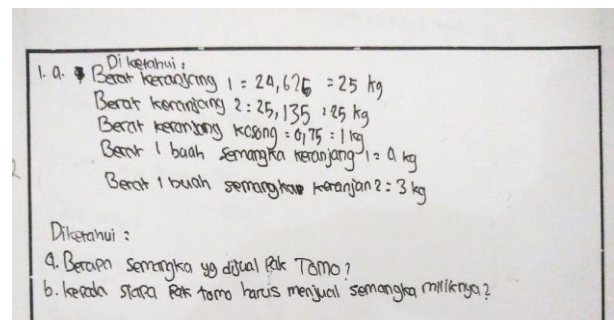 1. a. Diketahui :
Berat keranjang 1 = 24,625 = 25 kg
Berat keranjang 2 : 25,135 : 25 kg
Berat keranjang kosong = 0,75 : 1 kg
Berat 1 buah semangka keranjang 1 = 4 kg
Berat 1 buah semangka keranjan 2 : 3 kg
Diketahui :
a. Berapa semangka yg dijual Pak Tomo ?
b. kepada siapa Pak tomo harus menjual semangka miliknya ?